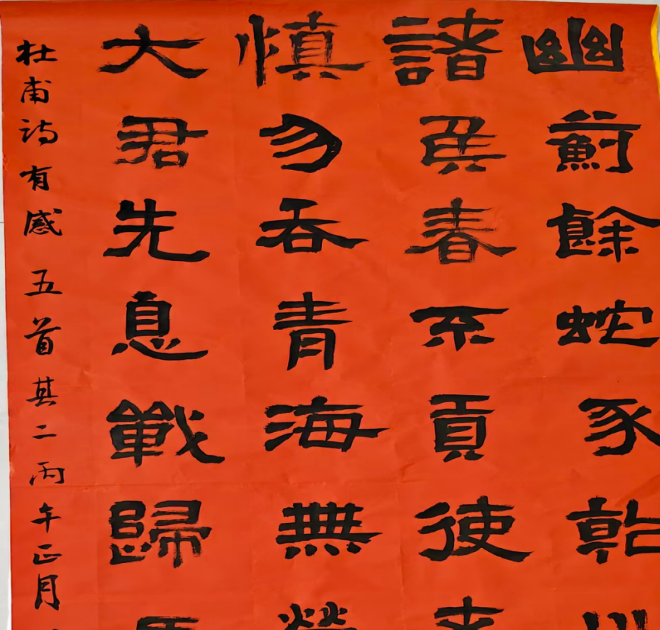 幽薊餘蛇豕乾
諸侯春不貢使
慎勿吞青海無
大君先息戰歸
杜甫诗有感五首其二丙午正月